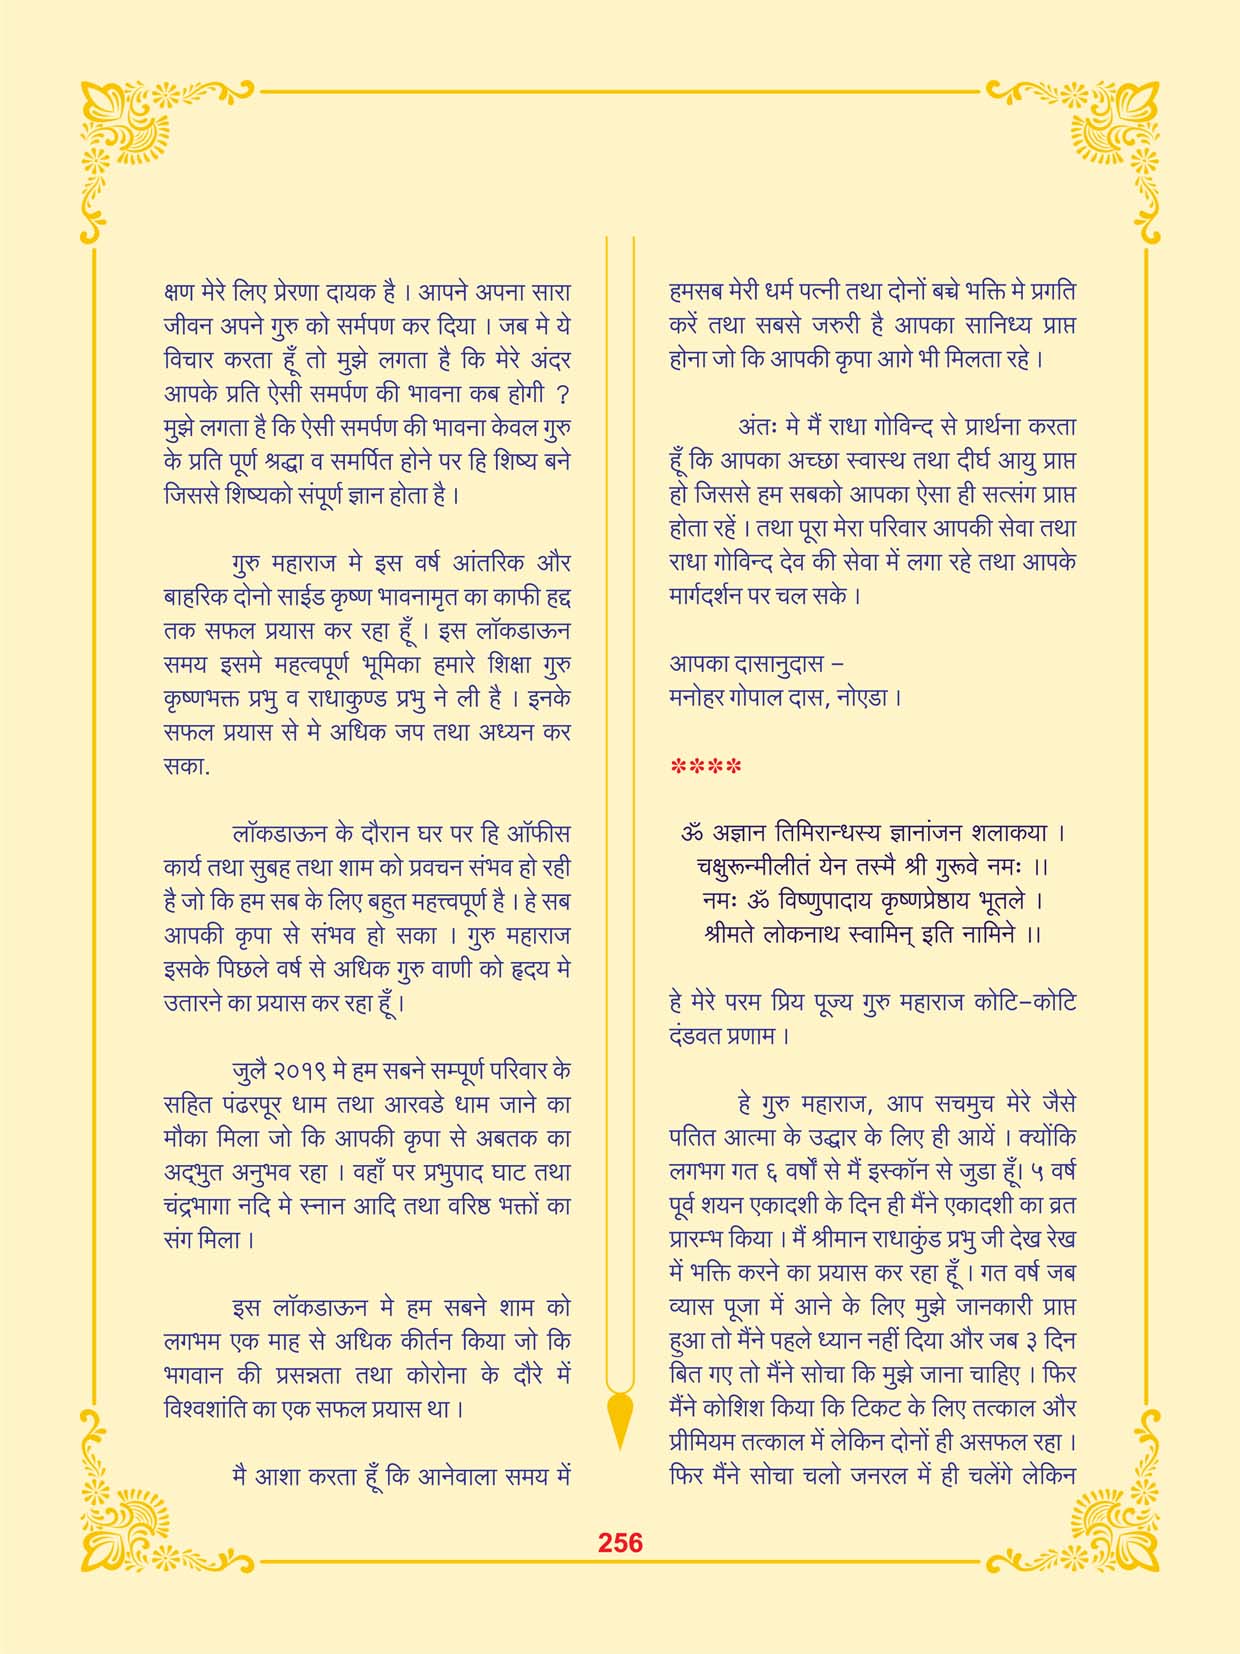 क्षण मेरे लिए प्रेरणा दायक है । आपने अपना सारा
जीवन अपने गुरु को सर्मपण कर दिया । जब मे ये
विचार करता हूँ तो मुझे लगता है कि मेरे अंदर
आपके प्रति ऐसी समर्पण की भावना कब होगी ?
मुझे लगता है कि ऐसी समर्पण की भावना केवल गुरु
के प्रति पूर्ण श्रद्धा व समर्पित होने पर हि शिष्य बने
जिससे शिष्यको संपूर्ण ज्ञान होता है ।
गुरु महाराज मे इस वर्ष आंतरिक और
बाहरिक दोनो साईड कृष्ण भावनामृत का काफी हद्द
तक सफल प्रयास कर रहा हूँ । इस लॉकडाऊन
समय इसमे महत्वपूर्ण भूमिका हमारे शिक्षा गुरु
कृष्णभक्त प्रभु व राधाकुण्ड प्रभु ने ली है । इनके
सफल प्रयास से मे अधिक जप तथा अध्यन कर
सका.
लॉकडाऊन के दौरान घर पर हि ऑफीस
कार्य तथा सुबह तथा शाम को प्रवचन संभव हो रही
है जो कि हम सब के लिए बहुत महत्त्वपूर्ण है । हे सब
आपकी कृपा से संभव हो सका । गुरु महाराज
इसके पिछले वर्ष से अधिक गुरु वाणी को हृदय मे
उतारने का प्रयास कर रहा हूँ ।
जुलै २०१९ मे हम सबने सम्पूर्ण परिवार के
सहित पंढरपूर धाम तथा आरवडे धाम जाने का
मौका मिला जो कि आपकी कृपा से अबतक का
अद्‌भुत अनुभव रहा । वहाँ पर प्रभुपाद घाट तथा
चंद्रभागा नदि मे स्नान आदि तथा वरिष्ठ भक्तों का
संग मिला ।
इस लॉकडाऊन मे हम सबने शाम को
लगभम एक माह से अधिक कीर्तन किया जो कि
भगवान की प्रसन्नता तथा कोरोना के दौरे में
विश्वशांति का एक सफल प्रयास था ।
मै आशा करता हूँ कि आनेवाला समय में
हमसब मेरी धर्म पत्नी तथा दोनों बच्चे भक्ति मे प्रगति
करें तथा सबसे जरुरी है आपका सानिध्य प्राप्त
होना जो कि आपकी कृपा आगे भी मिलता रहे ।
अंतः मे मैं राधा गोविन्द से प्रार्थना करता
हूँ कि आपका अच्छा स्वास्थ तथा दीर्घ आयु प्राप्त
हो जिससे हम सबको आपका ऐसा ही सत्संग प्राप्त
होता रहें । तथा पूरा मेरा परिवार आपकी सेवा तथा
राधा गोविन्द देव की सेवा में लगा रहे तथा आपके
मार्गदर्शन पर चल सके ।
आपका दासानुदास –
मनोहर गोपाल दास, नोएडा ।
****
ॐ अज्ञान तिमिरान्धस्य ज्ञानांजन शलाकया ।
चक्षुरून्मीलीतं येन तस्मै श्री गुरूवे नमः ।।
नमः ॐ विष्णुपादाय कृष्णप्रेष्ठाय भूतले ।
श्रीमते लोकनाथ स्वामिन् इति नामिने ।।
हे मेरे परम प्रिय पूज्य गुरु महाराज कोटि–कोटि
दंडवत प्रणाम ।
हे गुरु महाराज, आप सचमुच मेरे जैसे
पतित आत्मा के उद्धार के लिए ही आयें । क्योंकि
लगभग गत ६ वर्षों से मैं इस्कॉन से जुडा हूँ। ५ वर्ष
पूर्व शयन एकादशी के दिन ही मैंने एकादशी का व्रत
प्रारम्भ किया । मैं श्रीमान राधाकुंड प्रभु जी देख रेख
में भक्ति करने का प्रयास कर रहा हूँ । गत वर्ष जब
व्यास पूजा में आने के लिए मुझे जानकारी प्राप्त
हुआ तो मैंने पहले ध्यान नहीं दिया और जब ३ दिन
बित गए तो मैंने सोचा कि मुझे जाना चाहिए । फिर
मैंने कोशिश किया कि टिकट के लिए तत्काल और
प्रीमियम तत्काल में लेकिन दोनों ही असफल रहा ।
फिर मैंने सोचा चलो जनरल में ही चलेंगे लेकिन
256